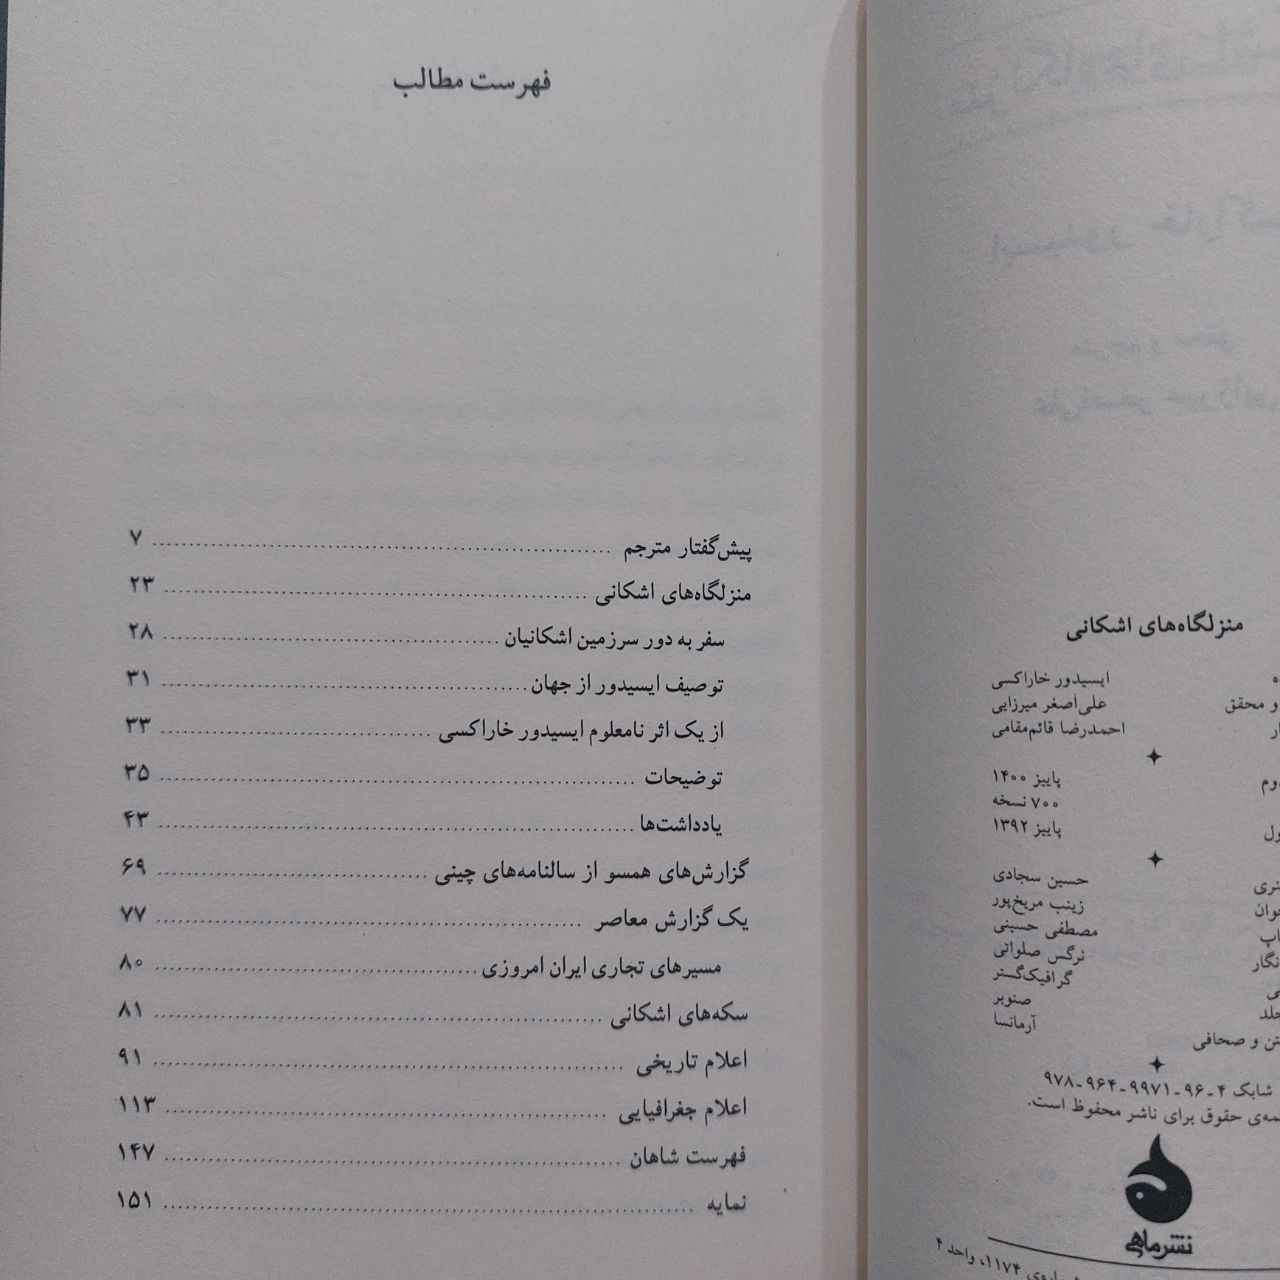 منزلگاه‌های اشکانی
ایسیدور خاراکسی
و محقق علی‌اصغر میرزایی
احمدرضا قائم‌مقامی
پاییز ۱۴۰۰
۷۰۰ نسخه
پاییز ۱۳۹۲
حسین سجادی
زینب مریخ‌پور
مصطفی حسینی
نرگس صلواتی
گرافیک‌گستر
صنوبر
آرمانسا
و صحافی
شابک ۴-۹۶-۹۹۷۱-۹۶۴-۹۷۸
حقوق برای ناشر محفوظ است.
نشر ماهی
۱۱۷۴، واحد ۴
فهرست مطالب
پیش‌گفتار مترجم ۷
منزلگاه‌های اشکانی ۲۳
سفر به دور سرزمین اشکانیان ۲۸
توصیف ایسیدور از جهان ۳۱
از یک اثر نامعلوم ایسیدور خاراکسی ۳۳
توضیحات ۳۵
یادداشت‌ها ۴۳
گزارش‌های همسو از سالنامه‌های چینی ۶۹
یک گزارش معاصر ۷۷
مسیرهای تجاری ایران امروزی ۸۰
سکه‌های اشکانی ۸۱
اعلام تاریخی ۹۱
اعلام جغرافیایی ۱۱۳
فهرست شاهان ۱۴۷
نمایه ۱۵۱